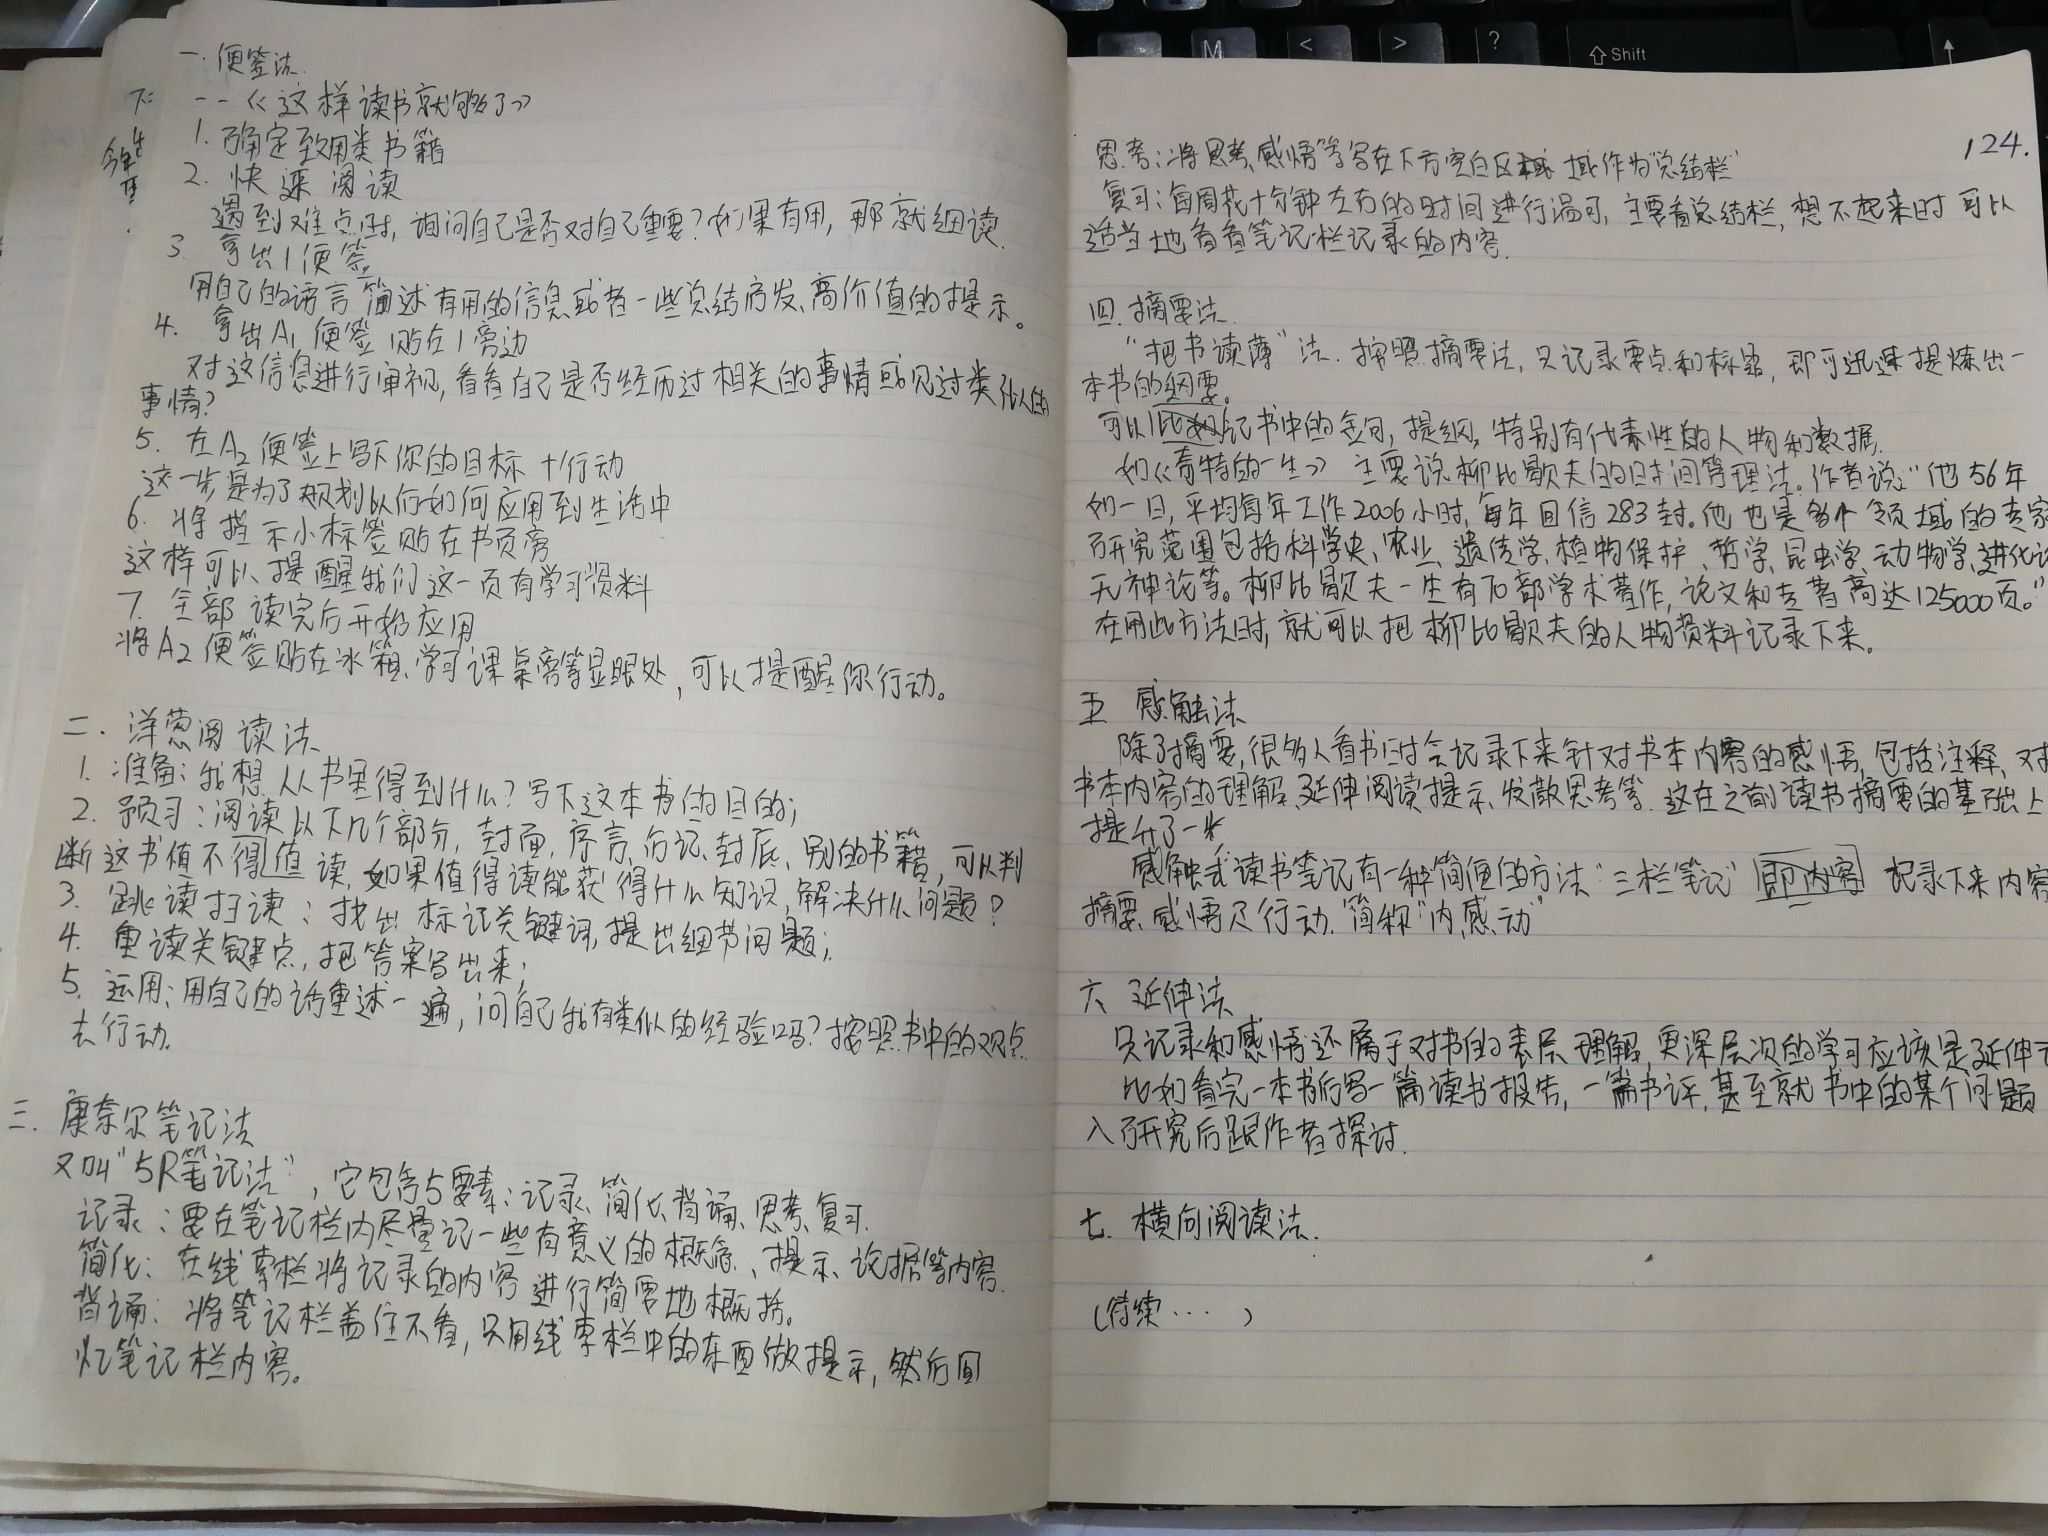 一. 便签法.
--《这样读书就够了》
1. 确定致用类书籍
2. 快速阅读
遇到难点时, 询问自己是否对自己重要? 如果有用, 那就细读.
3. 拿出1便签
用自己的语言简述有用的信息或者一些总结启发、高价值的提示。
4. 拿出A1便签 贴在1旁边
对这信息进行审视, 看看自己是否经历过相关的事情或见过类似的
事情?
5. 在A2便签上写下你的目标+行动
这一步是为了规划以后如何应用到生活中
6. 将提示小标签贴在书页旁
这样可以提醒我们这一页有学习资料
7. 全部读完后开始应用
将A2便签贴在冰箱、学习课桌旁等显眼处, 可以提醒你行动。
二. 洋葱阅读法
1. 准备: 我想从书里得到什么? 写下这本书的目的;
2. 预习: 阅读以下几个部分, 封面, 序言、后记、封底、别的书籍, 可以判
断这书值不得值读, 如果值得读能获得什么知识, 解决什么问题?
3. 跳读扫读: 找出标记关键词, 提出细节问题;
4. 重读关键点, 把答案写出来;
5. 运用: 用自己的话重述一遍, 问自己我有类似的经验吗? 按照书中的观点
去行动.
三. 康奈尔笔记法
又叫"5R笔记法", 它包含5要素: 记录、简化、背诵、思考、复习.
记录: 要在笔记栏内尽量记一些有意义的概念、提示、论据等内容.
简化: 在线索栏将记录的内容进行简要地概括。
背诵: 将笔记栏盖住不看, 只用线索栏中的东西做提示, 然后回
忆笔记栏内容。
124.
思考: 将思考、感悟等写在下方空白区域 域作为"总结栏"
复习: 每周花十分钟左右的时间进行温习, 主要看总结栏, 想不起来时可以
适当地看看笔记栏记录的内容.
四. 摘要法.
"把书读薄"法. 按照摘要法, 只记录要点和标题, 即可迅速提炼出一
本书的纲要。
可以比如记书中的金句, 提纲, 特别有代表性的人物和数据.
如《奇特的一生》 主要说柳比歇夫的时间管理法。作者说: "他56年
如一日, 平均每年工作2006小时, 每年回信283封。他也是多个领域的专家
研究范围包括科学史、农业、遗传学、植物保护、哲学、昆虫学、动物学、进化论
无神论等。柳比歇夫一生有70部学术著作, 论文和专著高达125000页。"
在用此方法时, 就可以把柳比歇夫的人物资料记录下来。
五 感触法
除了摘要, 很多人看书时会记录下来针对书本内容的感悟, 包括注释、对
书本内容的理解、延伸阅读提示、发散思考等. 这在之前读书摘要的基础上
提升了一步
感触式读书笔记有一种简便的方法"三栏笔记" 即内容 记录下来内容
摘要、感悟及行动. 简称"内、感、动"
六 延伸法
只记录和感悟还属于对书的表层理解, 更深层次的学习应该是延伸
比如看完一本书后写一篇读书报告, 一篇书评, 甚至就书中的某个问题
入研究后跟作者探讨.
七. 横向阅读法.
(待续....)